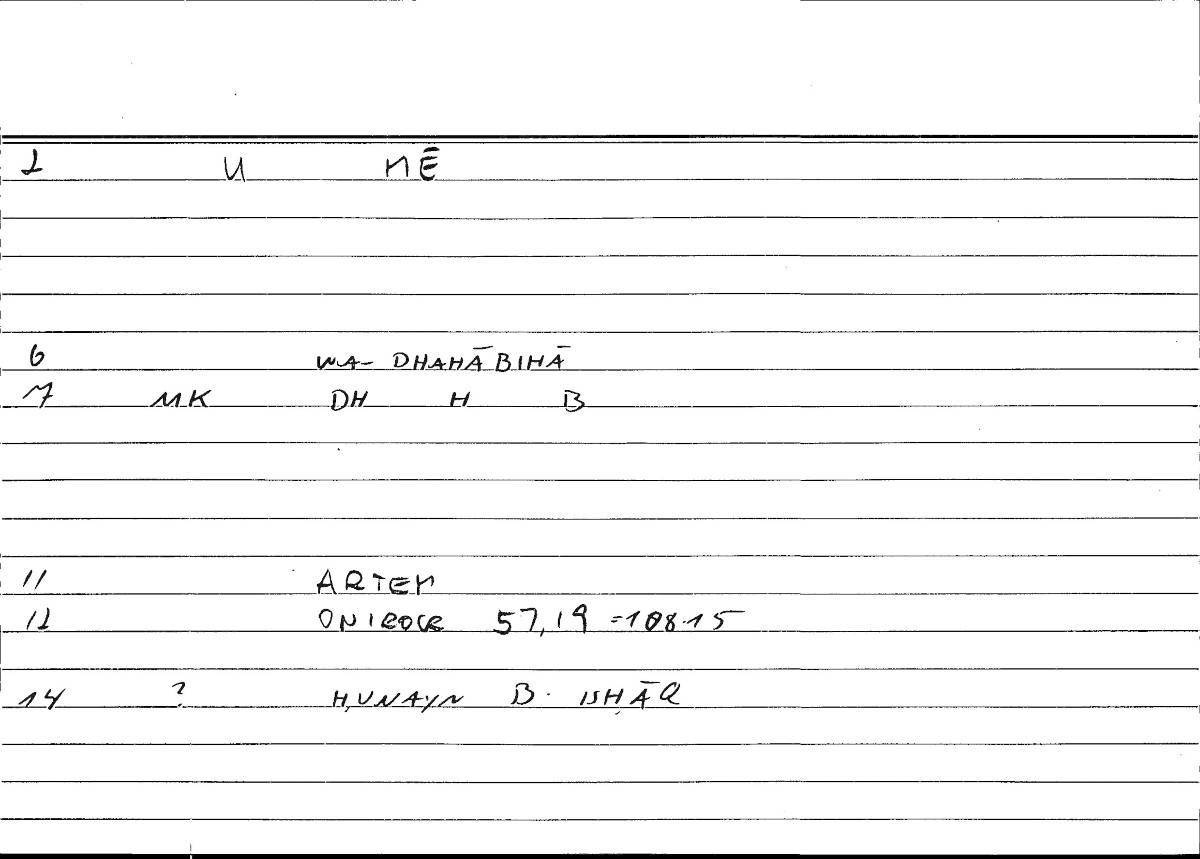 1 U MĒ
6 WA- DHAHĀBIHĀ
7 MK DH H B
11 ARTEM
12 ONIROCR 57,19 =108.15
14 ? ḤUNAYN B. ISḤĀQ